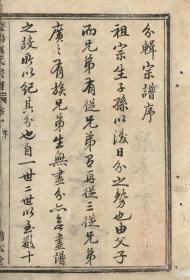 分輯宗譜序
祖宗生子孫以後日分之勢也由父子
而兄弟有從兄弟再從三從兄弟
廣之有族兄弟生無盡分亦無盡譜
之設所以紀其分也自一世二世以至數十
氏宗譜